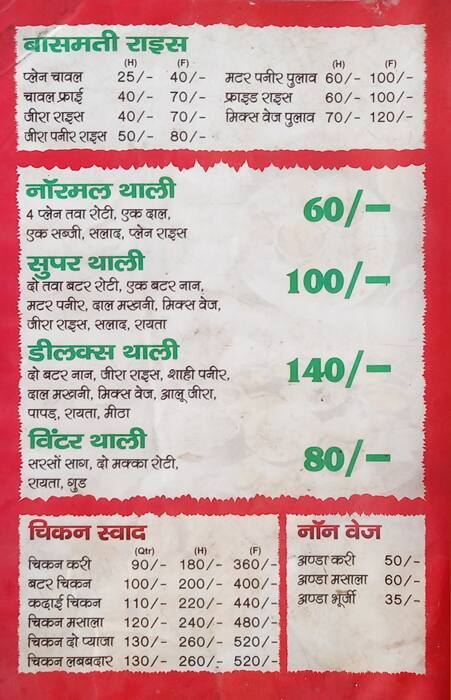 बासमती राइस
(H) (F)
प्लेन चावल 25/- 40/-
चावल फ्राई 40/- 70/-
जीरा राइस 40/- 70/-
जीरा पनीर राइस 50/- 80/-
(H) (F)
मटर पनीर पुलाव 60/- 100/-
फ्राइड राइस 60/- 100/-
मिक्स वेज पुलाव 70/- 120/-
नॉरमल थाली 60/-
4 प्लेन तवा रोटी, एक दाल,
एक सब्जी, सलाद, प्लेन राइस
सुपर थाली 100/-
दो तवा बटर रोटी, एक बटर नान,
मटर पनीर, दाल मखनी, मिक्स वेज,
जीरा राइस, सलाद, रायता
डीलक्स थाली 140/-
दो बटर नान, जीरा राइस, शाही पनीर,
दाल मखनी, मिक्स वेज, आलू जीरा,
पापड़, रायता, मीठा
विंटर थाली 80/-
सरसों साग, दो मक्का रोटी,
रायता, गुड
चिकन स्वाद
(Qtr) (H) (F)
चिकन करी 90/- 180/- 360/-
बटर चिकन 100/- 200/- 400/-
कढाई चिकन 110/- 220/- 440/-
चिकन मसाला 120/- 240/- 480/-
चिकन दो प्याजा 130/- 260/- 520/-
चिकन लबबदार 130/- 260/- 520/-
नॉन वेज
अण्डा करी 50/-
अण्डा मसाला 60/-
अण्डा भूर्जी 35/-